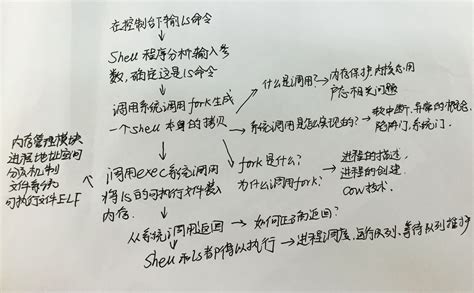 在控制台下输ls命令
Shell 程序分析输入参
数,确定这是ls命令
调用系统调用fork生成
一个shell本身的拷贝
什么是调用?
内存保护,内核态用
户态相关问题
系统调用是怎么实现的?
软中断、异常的概念
陷阱门、系统门.
调用exec系统调用
将ls的可执行文件载入
内存.
内存管理模块
进程地址空间
分页机制
文件系统
可执行文件ELF
fork是什么?
为什么调用fork?
进程的描述,
进程的创建.
COW技术.
从系统调用返回
如何正确返回?
Shell和ls都得以执行
进程调度,运行队列、等待队列